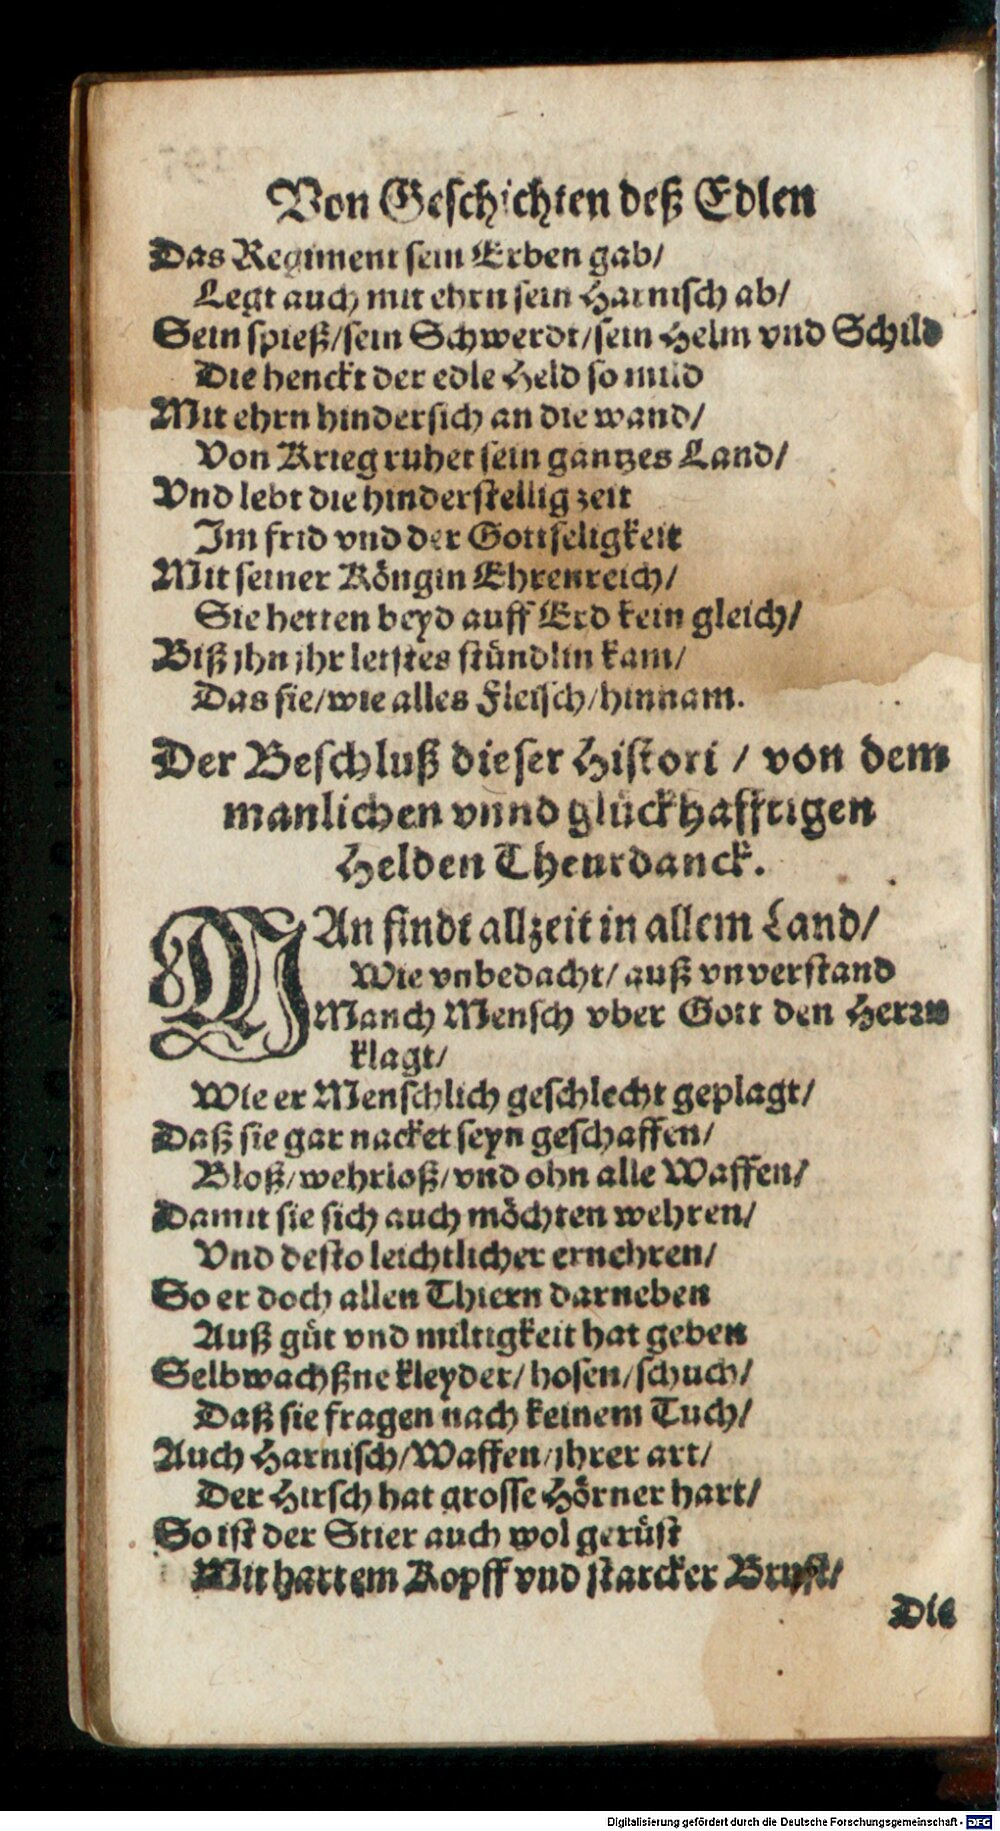 Von Geschichten deß Edlen
Das Regiment sein Erben gab/
Legt auch mit ehrn sein Harnisch ab/
Sein spieß/sein Schwerdt/sein Helm vnd Schild
Die henckt der edle Held so mild
Mit ehrn hindersich an die wand/
Von Krieg ruhet sein gantzes Land/
Vnd lebt die hinderstellig zeit
Im frid vnd der Gottseligkeit
Mit seiner Köngin Ehrenreich/
Sie hetten beyd auff Erd kein gleich/
Biß jhn jhr letstes stündlin kam/
Das sie/wie alles Fleisch/hinnam.
Der Beschluß dieser Histori / von dem
manlichen vnnd glückhafftigen
Helden Theurdanck.
MAn findt allzeit in allem Land/
Wie vnbedacht/ auß vnverstand
Manch Mensch vber Gott den Herrn
klagt/
Wie er Menschlich geschlecht geplagt/
Daß sie gar nacket seyn geschaffen/
Bloß/wehrloß/vnd ohn alle Waffen/
Damit sie sich auch möchten wehren/
Vnd desto leichtlicher ernehren/
So er doch allen Thiern darneben
Auß güt vnd miltigkeit hat geben
Selbwachßne kleyder/hosen/schuch/
Daß sie fragen nach keinem Tuch/
Auch Harnisch/Waffen/jhrer art/
Der Hirsch hat grosse Hörner hart/
So ist der Stier auch wol gerüst
Mit hartem Kopff vnd starcker Brust/
Die
Digitalisierung gefördert durch die Deutsche Forschungsgemeinschaft - DFG